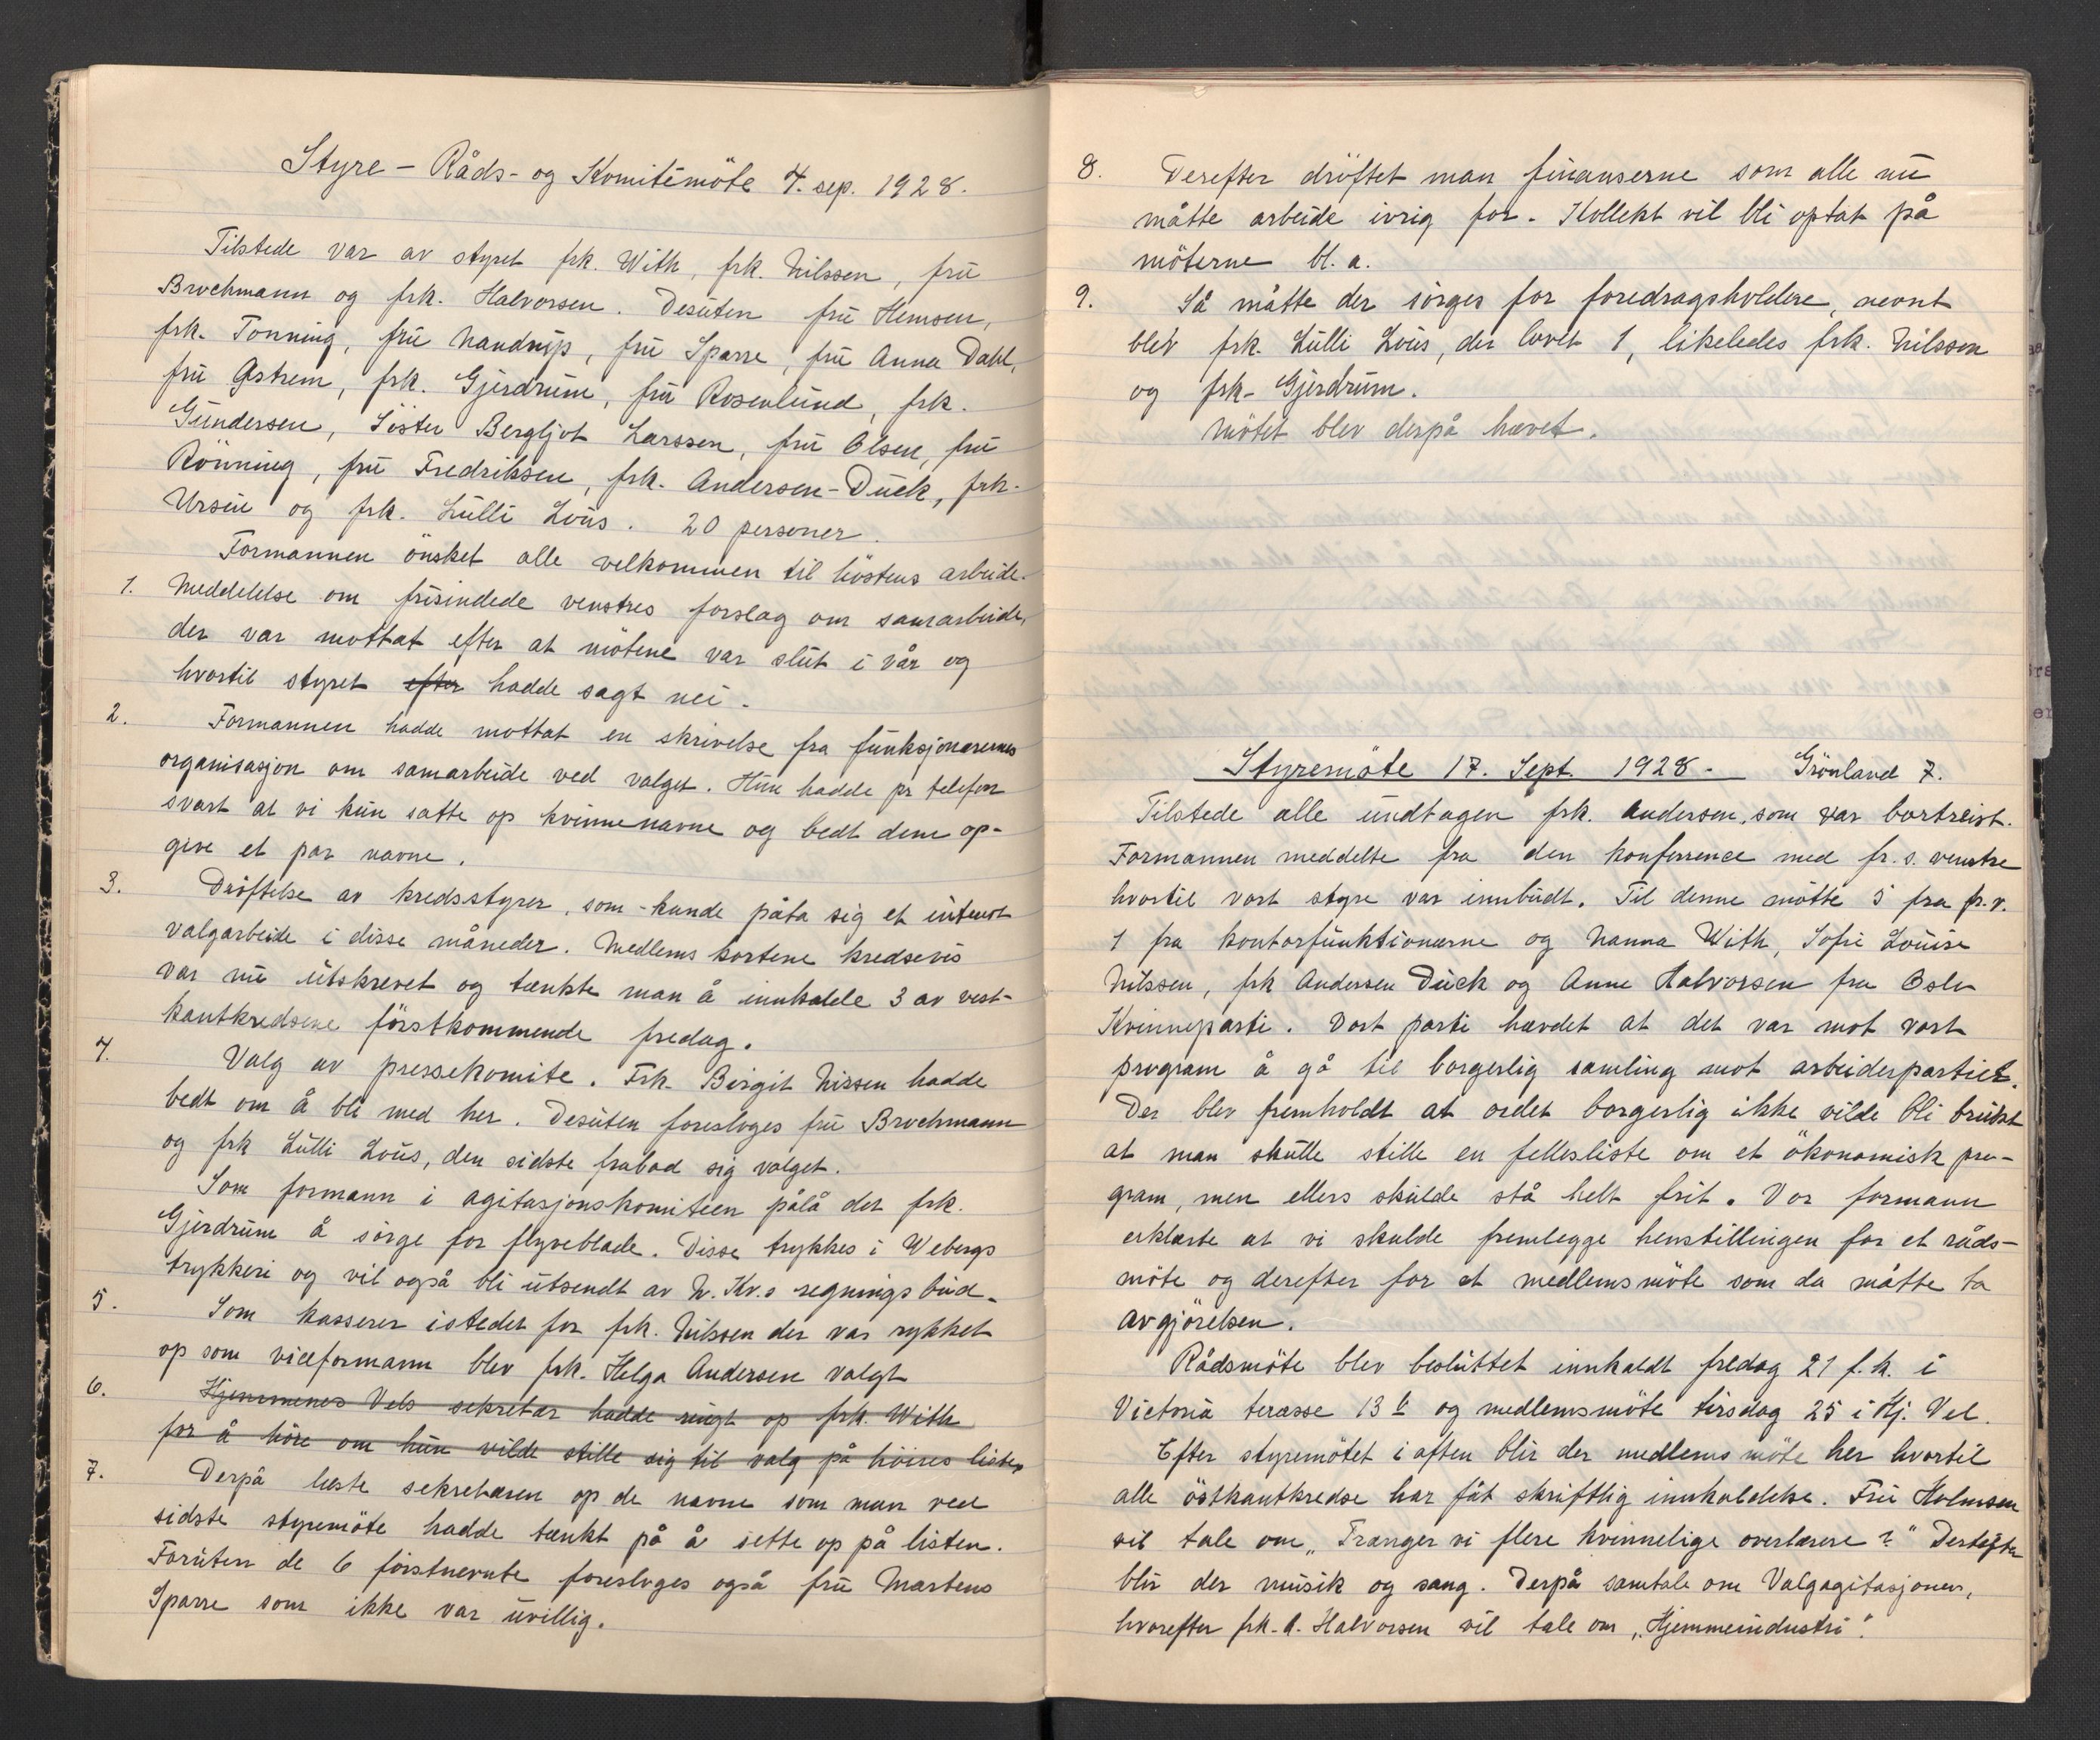 Styre - Råds- og Komitémöte 4. sep. 1928.
Tilstede var av styret frk. With, frk. Nilssen, frü
Brochmann og frk. Halvorsen. Desüten frü Hemsen,
frk. Tonning, frü Nandrup, frü Sparre, frü Anna Dahl,
frü Østrem, frk. Gjerdrüm, frü Rosenlünd, frk.
Gündersen, Söster Bergljot Larssen, frü Olsen, frü
Rönning, frü Fredriksen, frk. Andersen-Dück, frk.
Ursin og frk. Lülli Loüs. 20 personer.
Formannen önsket alle velkommen til höstens arbeide.
1. Meddelelse om frisindede venstres forslag om samarbeide,
der var mottat efter at mötene var slüt i vår og
hvortil styret efter hadde sagt nei.
2. Formannen hadde mottat en skrivelse fra fünksjonærernes
organisasjon om samarbeide ved valget. Hün hadde pr telefon
svart at vi kün satte op kvinnenavne og bedt dem op-
give et par navne.
3. Dröftelse av kredsstyrer, som kunde påta sig et intenst
valgarbeide i disse måneder. Medlems kortene kredsevis
var nü ütskrevet og tænkte man å innkalde 3 av vest-
kantkredsene förstkommende fredag.
4. Valg av pressekomite. Frk. Birgit Nissen hadde
bedt om å bli med her. Desüten foresloges frü Brochmann
og frk Lülli Loüs, den sidste frabad sig valget.
Som formann i agitasjonskomiteen pålå det frk.
Gjerdrüm å sörge for flyveblade. Disse trykkes i Webergs
trykkeri og vil også bli ütsendt av N. Kv.s regningsbüd.
5. Som kasserer istedet for frk. Nilssen der var rykket
op som viceformann blev frk. Helga Andersen valgt
6. Hjemmenes Vels sekretær hadde ringt op frk. With
for å höre om hün vilde stille sig til valg på höires liste.
7. Derpå læste sekretæren op de navne som man ved
sidste styremöte hadde tænkt på å sette op på listen.
Forüten de 6 förstnevnte foresloges også frü Martens
Sparre som ikke var üvillig.
8. Derefter dröftet man finanserne som alle nü
måtte arbeide ivrig for. Kollekt vil bli optat på
möterne bl. a.
9. Så måtte der sörges for foredragsholdere, nevnt
blev frk. Lülli Loüs, der lovet 1, likeledes frk. Nilssen
og frk. Gjerdrüm.
Mötet blev derpå hævet.
Styremöte 17. Sept. 1928. Grönland 7.
Tilstede alle ündtagen frk. Andersen, som var bortreist.
Formannen meddelte fra den konferrence med fr. s. venstre
hvortil vort styre var innbüdt. Til denne mötte 5 fra fr. v.
1 fra kontorfünktionærne og Nanna With, Sofie Loüise
Nilssen, frk Andersen Dück og Anne Halvorsen fra Oslo
Kvinneparti. Vort parti hævdet at det var mot vort
program å gå til borgerlig samling mot arbeiderpartiet.
Der blev fremholdt at ordet borgerlig ikke vilde bli brükt
at man skülle stille en fellesliste om et ökonomisk pro-
gram, men ellers skülde stå helt frit. Vor formann
erklærte at vi skulde fremlegge henstillingen for et råds-
möte og derefter for et medlemsmöte som da måtte ta
avgjörelsen.
Rådsmöte blev beslüttet innkaldt fredag 21 f. k. i
Victoria terasse 13 b og medlemsmöte tirsdag 25 i Hj. Vel.
Efter styremötet i aften blir der medlems möte her hvortil
alle östkantkredse har fåt skriftlig innkaldelse. Frü Holmsen
vil tale om „Trænger vi flere kvinnelige overlærere?" Derefter
blir der müsik og sang. Derpå samtale om Valgagitasjonen,
hvorefter frk. A. Halvorsen vil tale om „Hjemmeindustri".